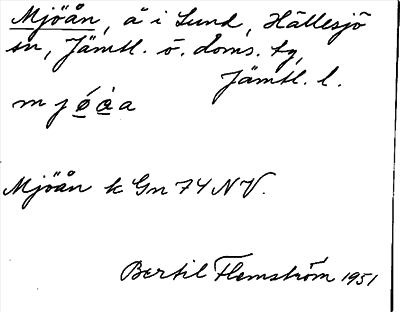 Mjöån, å i Sund, Hällesjö
sn, Jämtl. ö. doms. tg,
Jämtl. l.
m j ǿ å̀ a
Mjöån k Gn 74 NV.
Bertil Flemström 1951